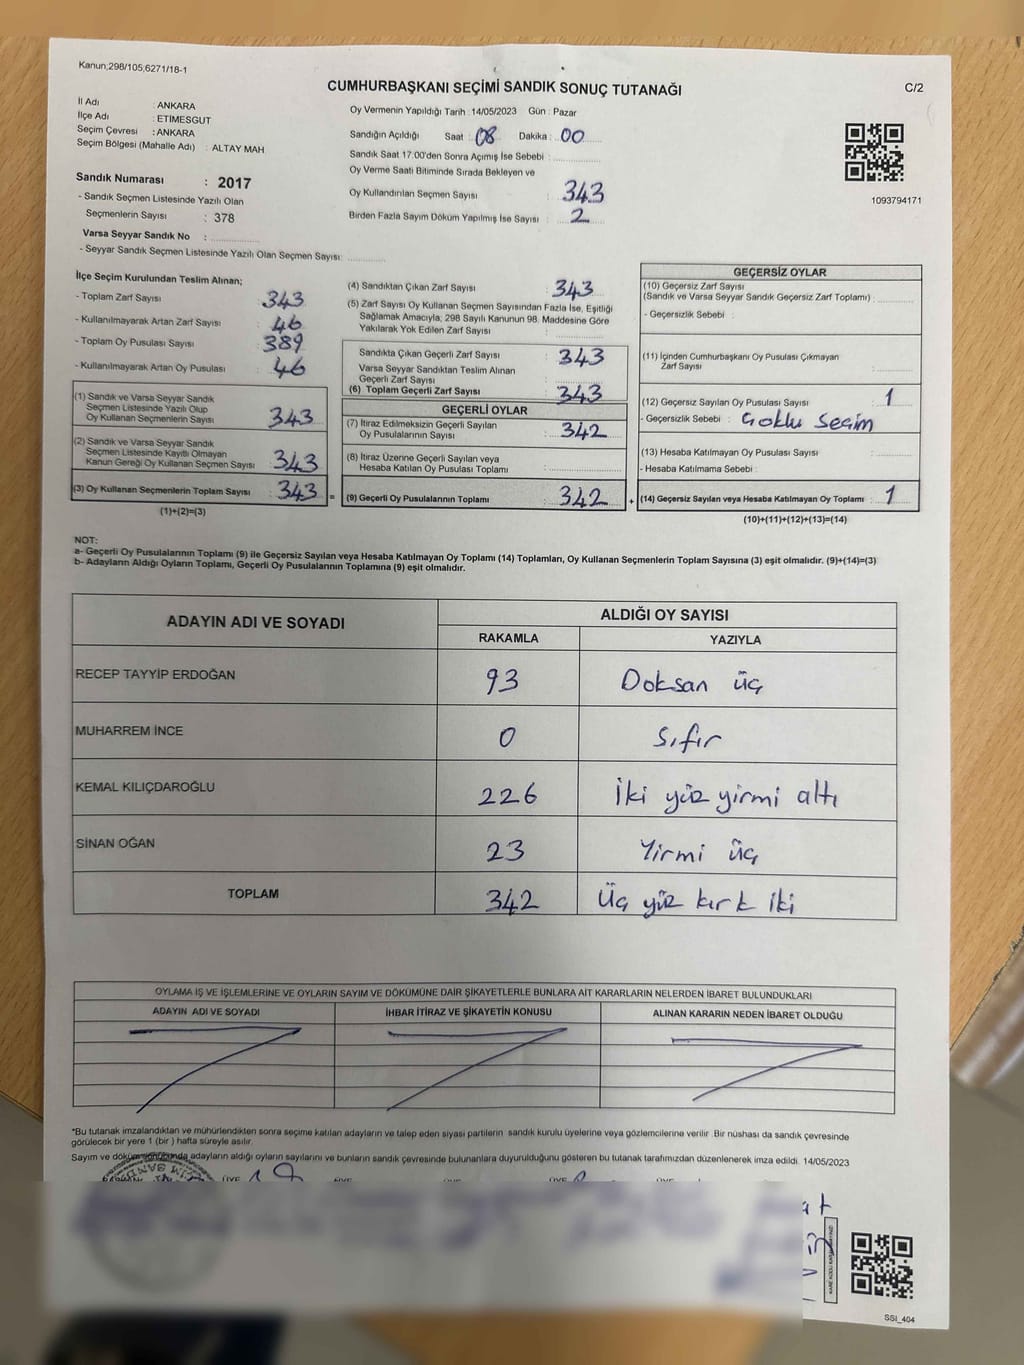 Kanun;298/105;6271/18-1
CUMHURBAŞKANI SEÇİMİ SANDIK SONUÇ TUTANAĞI
C/2
İl Adı : ANKARA
İlçe Adı : ETİMESGUT
Seçim Çevresi : ANKARA
Seçim Bölgesi (Mahalle Adı) : ALTAY MAH
Sandık Numarası : 2017
- Sandık Seçmen Listesinde Yazılı Olan
Seçmenlerin Sayısı : 378
Varsa Seyyar Sandık No :
- Seyyar Sandık Seçmen Listesinde Yazılı Olan Seçmen Sayısı:
Oy Vermenin Yapıldığı Tarih :14/05/2023 Gün : Pazar
Sandığın Açıldığı Saat : 08 Dakika : 00
Sandık Saat 17:00'den Sonra Açımış İse Sebebi :
Oy Verme Saati Bitiminde Sırada Bekleyen ve
Oy Kullandırılan Seçmen Sayısı : 343
Birden Fazla Sayım Döküm Yapılmış İse Sayısı : 2
1093794171
İlçe Seçim Kurulundan Teslim Alınan;
- Toplam Zarf Sayısı : 343
- Kullanılmayarak Artan Zarf Sayısı : 46
- Toplam Oy Pusulası Sayısı : 389
- Kullanılmayarak Artan Oy Pusulası : 46
(1) Sandık ve Varsa Seyyar Sandık
Seçmen Listesinde Yazılı Olup
Oy Kullanan Seçmenlerin Sayısı : 343
(2) Sandık ve Varsa Seyyar Sandık
Seçmen Listesinde Kayıtlı Olmayan
Kanun Gereği Oy Kullanan Seçmen Sayısı : 343
(3) Oy Kullanan Seçmenlerin Toplam Sayısı : 343 =
(1)+(2)=(3)
(4) Sandıktan Çıkan Zarf Sayısı : 343
(5) Zarf Sayısı Oy Kullanan Seçmen Sayısından Fazla İse, Eşitliği
Sağlamak Amacıyla; 298 Sayılı Kanunun 98. Maddesine Göre
Yakılarak Yok Edilen Zarf Sayısı :
Sandıkta Çıkan Geçerli Zarf Sayısı : 343
Varsa Seyyar Sandıktan Teslim Alınan
Geçerli Zarf Sayısı :
(6) Toplam Geçerli Zarf Sayısı : 343
GEÇERLİ OYLAR
(7) İtiraz Edilmeksizin Geçerli Sayılan
Oy Pusulalarının Sayısı : 342
(8) İtiraz Üzerine Geçerli Sayılan veya
Hesaba Katılan Oy Pusulası Toplamı :
(9) Geçerli Oy Pusulalarının Toplamı : 342 +
GEÇERSİZ OYLAR
(10) Geçersiz Zarf Sayısı
(Sandık ve Varsa Seyyar Sandık Geçersiz Zarf Toplamı) :
- Geçersizlik Sebebi :
(11) İçinden Cumhurbaşkanı Oy Pusulası Çıkmayan
Zarf Sayısı :
(12) Geçersiz Sayılan Oy Pusulası Sayısı : 1
- Geçersizlik Sebebi : Çoklu Seçim
(13) Hesaba Katılmayan Oy Pusulası Sayısı :
- Hesaba Katılmama Sebebi :
(14) Geçersiz Sayılan veya Hesaba Katılmayan Oy Toplamı : 1
(10)+(11)+(12)+(13)=(14)
NOT:
a- Geçerli Oy Pusulalarının Toplamı (9) ile Geçersiz Sayılan veya Hesaba Katılmayan Oy Toplamı (14) Toplamları, Oy Kullanan Seçmenlerin Toplam Sayısına (3) eşit olmalıdır. (9)+(14)=(3)
b- Adayların Aldığı Oyların Toplamı, Geçerli Oy Pusulalarının Toplamına (9) eşit olmalıdır.
ADAYIN ADI VE SOYADI
ALDIĞI OY SAYISI
RAKAMLA YAZIYLA
RECEP TAYYİP ERDOĞAN 93 Doksan üç
MUHARREM İNCE 0 Sıfır
KEMAL KILIÇDAROĞLU 226 İki yüz yirmi altı
SİNAN OĞAN 23 Yirmi üç
TOPLAM 342 Üç yüz kırk iki
OYLAMA İŞ VE İŞLEMLERİNE VE OYLARIN SAYIM VE DÖKÜMÜNE DAİR ŞİKAYETLERLE BUNLARA AİT KARARLARIN NELERDEN İBARET BULUNDUKLARI
ADAYIN ADI VE SOYADI İHBAR İTİRAZ VE ŞİKAYETİN KONUSU ALINAN KARARIN NEDEN İBARET OLDUĞU
*Bu tutanak imzalandıktan ve mühürlendikten sonra seçime katılan adayların ve talep eden siyasi partilerin sandık kurulu üyelerine veya gözlemcilerine verilir. Bir nüshası da sandık çevresinde
görülecek bir yere 1 (bir ) hafta süreyle asılır.
Sayım ve döküm sonunda adayların aldığı oyların sayılarını ve bunların sandık çevresinde bulunanlara duyurulduğunu gösteren bu tutanak tarafımızdan düzenlenerek imza edildi. 14/05/2023
SSI_404